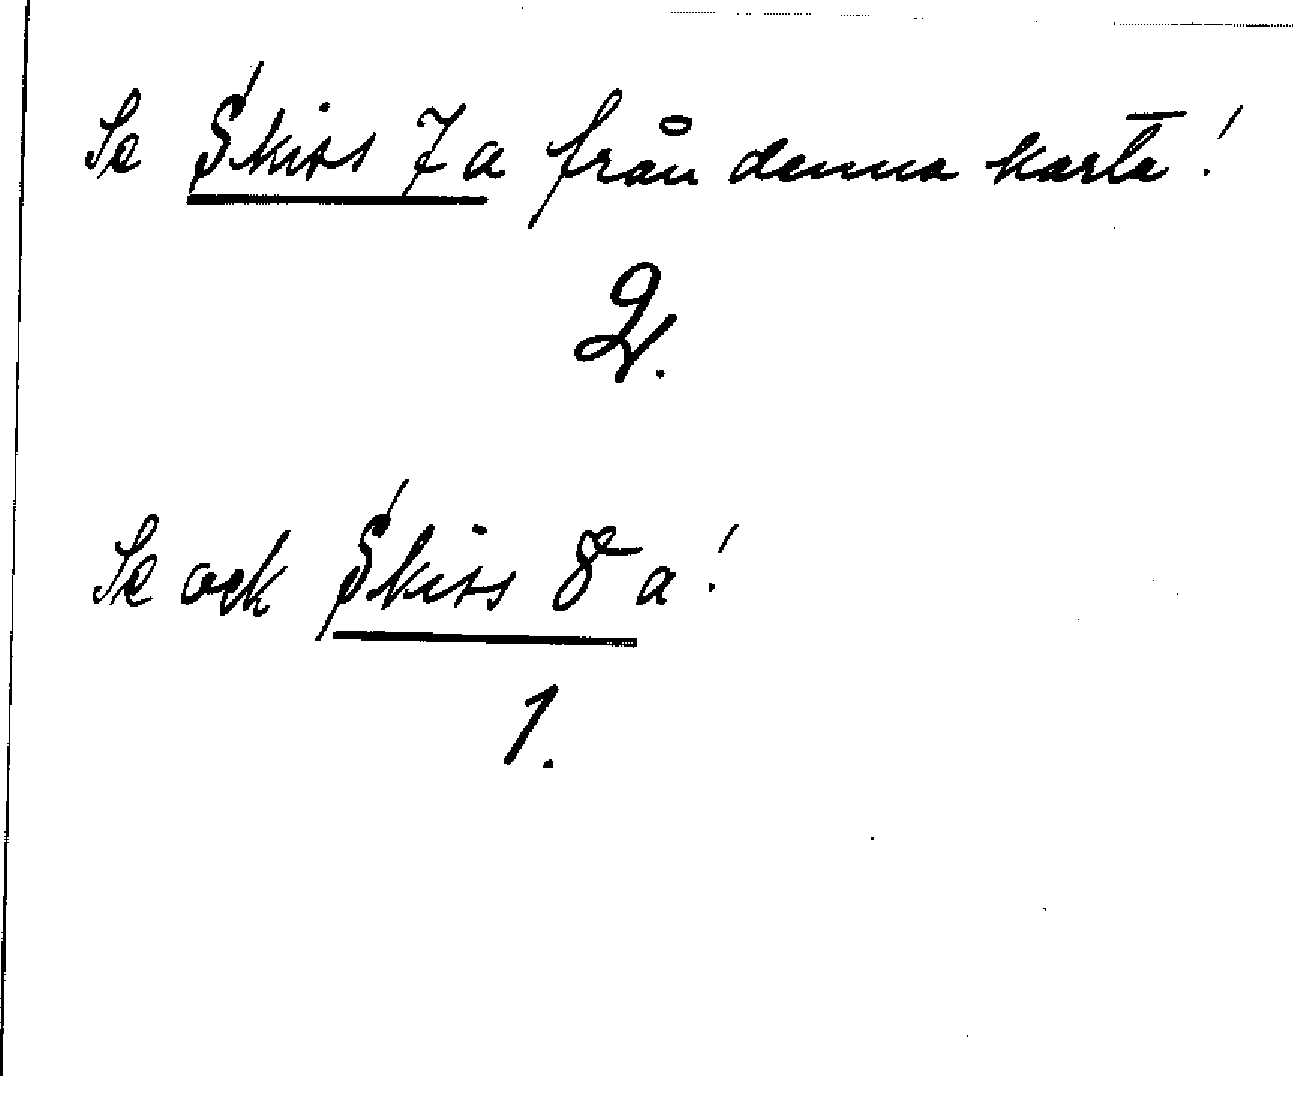 Se Skiss 7a från denna karta!
2.
Se ock Skiss 8a!
1.